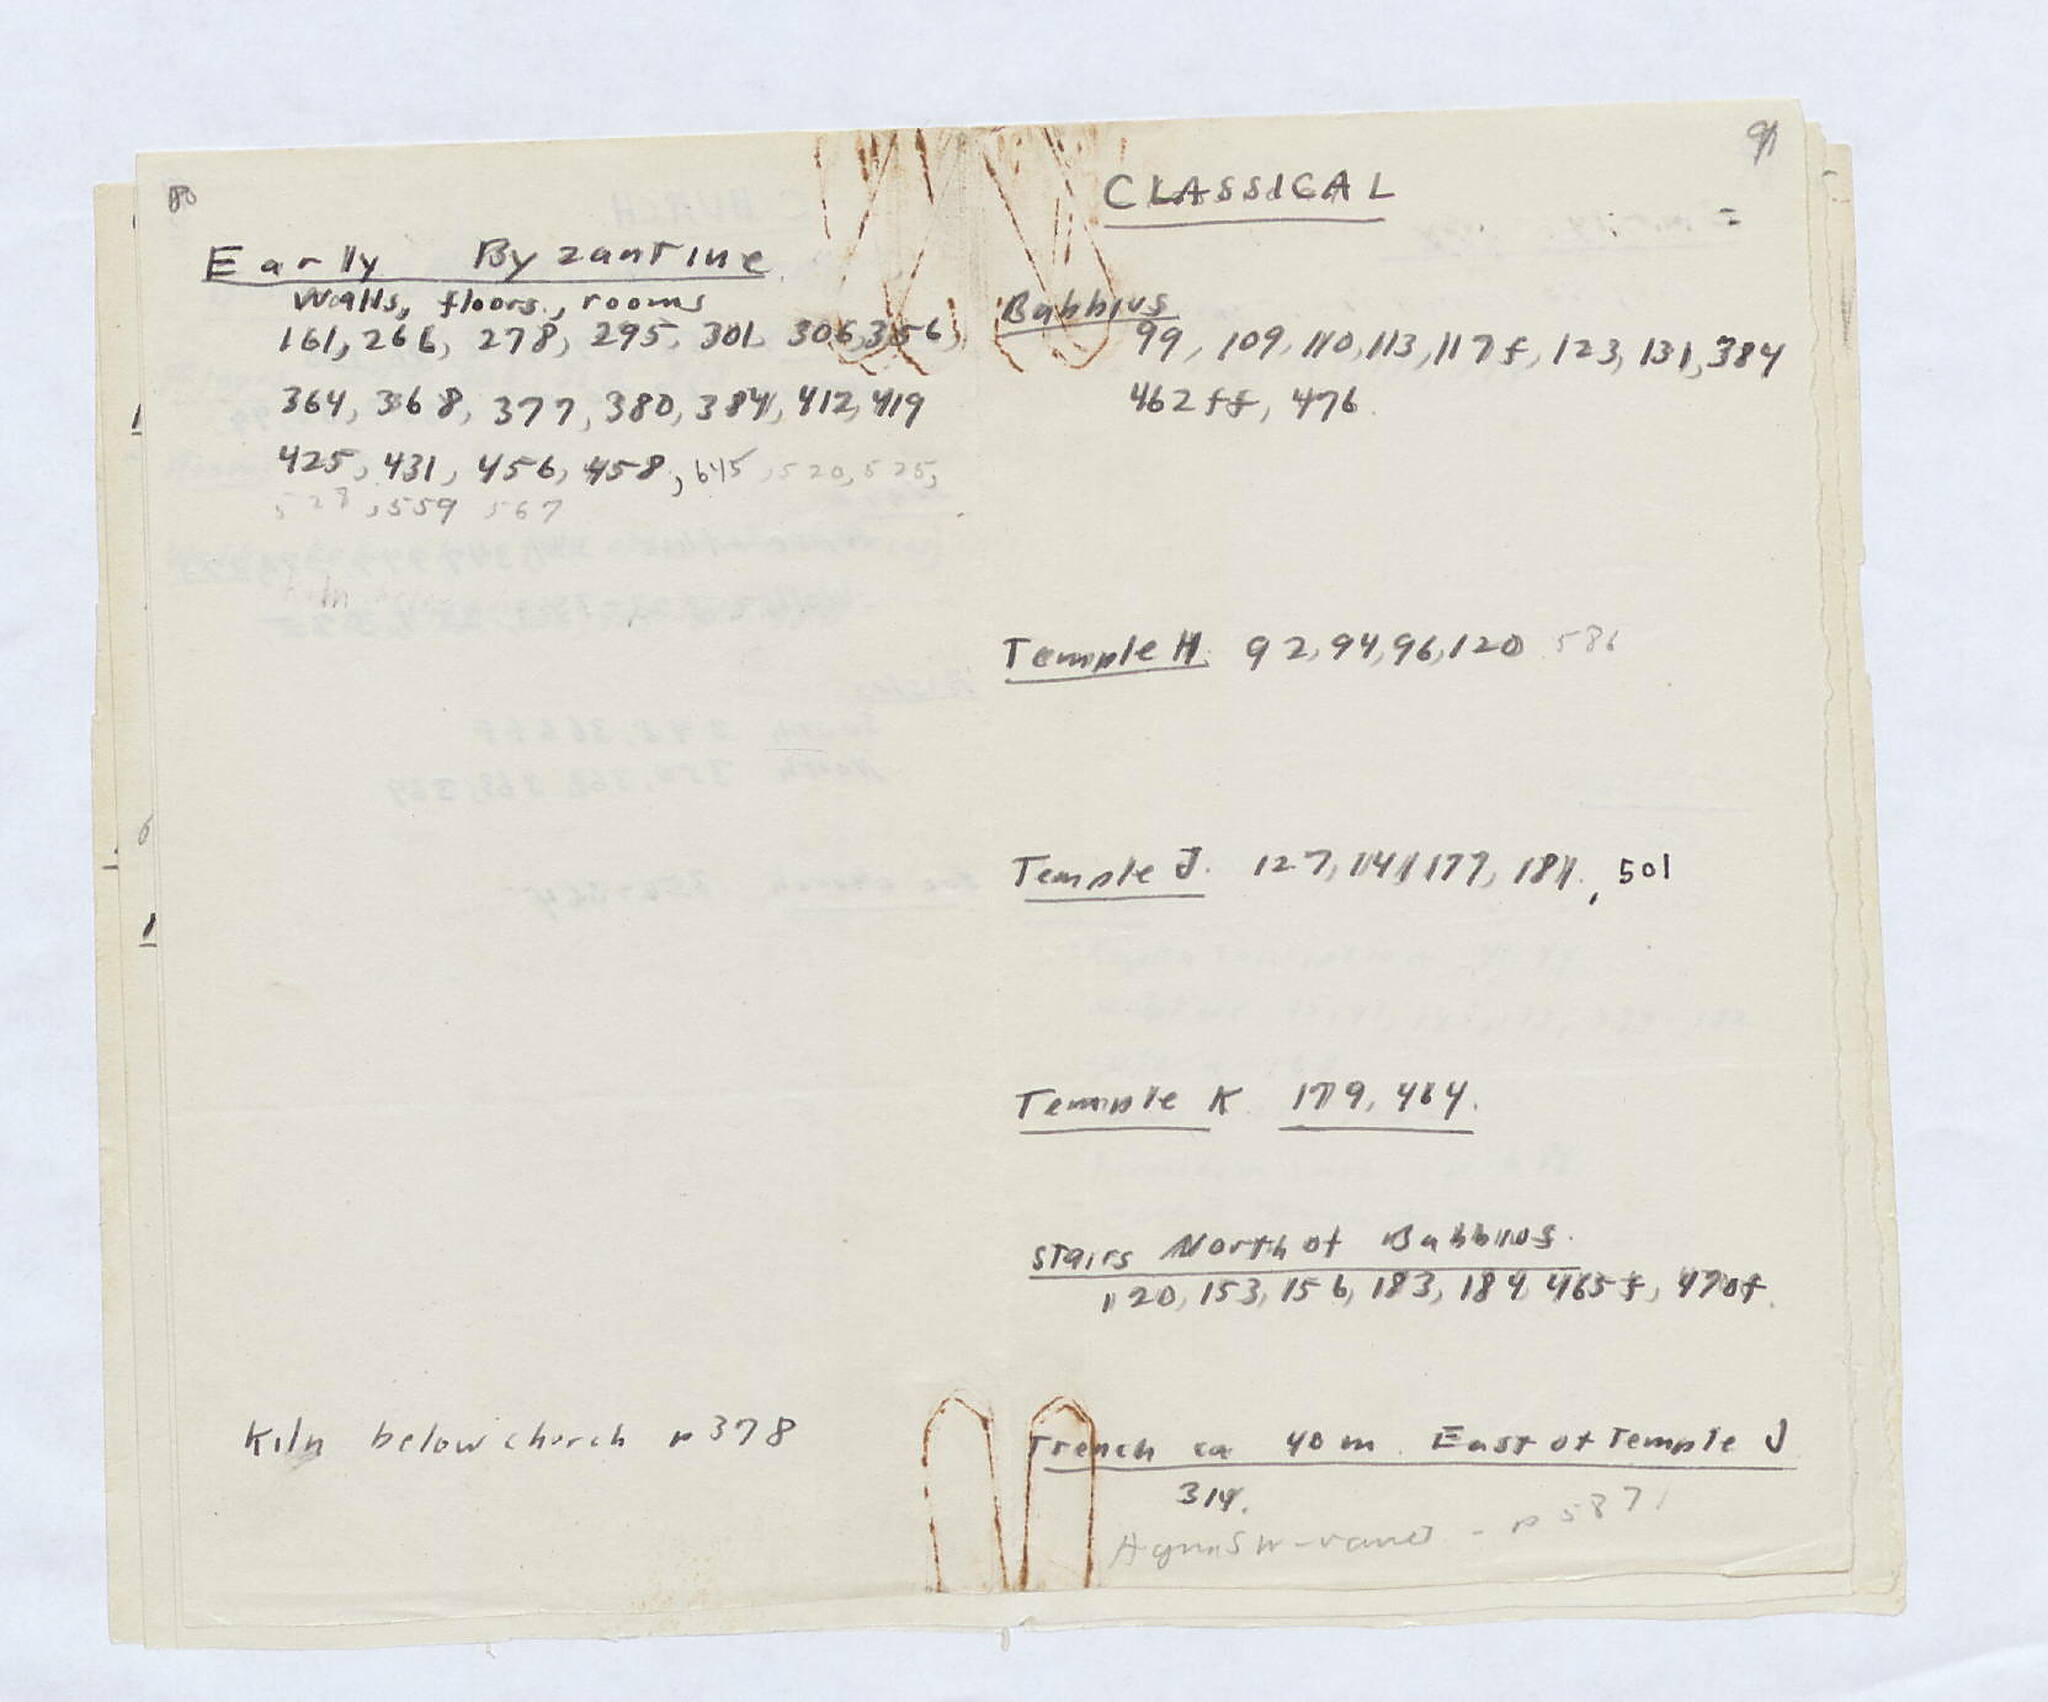 80
Early Byzantine
Walls, floors, rooms
161, 266, 278, 295, 301, 306, 356,
364, 368, 377, 380, 384, 412, 419
425, 431, 456, 458, 520, 525,
528, 559 567
Kiln below church p 378
91
CLASSICAL
Babbius
99, 109, 110, 113, 117 f, 123, 131, 384
462 ff, 476.
Temple H. 92, 94, 96, 120 586
Temple J. 127, 141, 177, 181, 501
Temple K 179, 464.
Stairs North of Babbius.
120, 153, 156, 183, 184, 465 f, 470 f.
Trench ca 40 m. East of Temple J
314.
- p 587